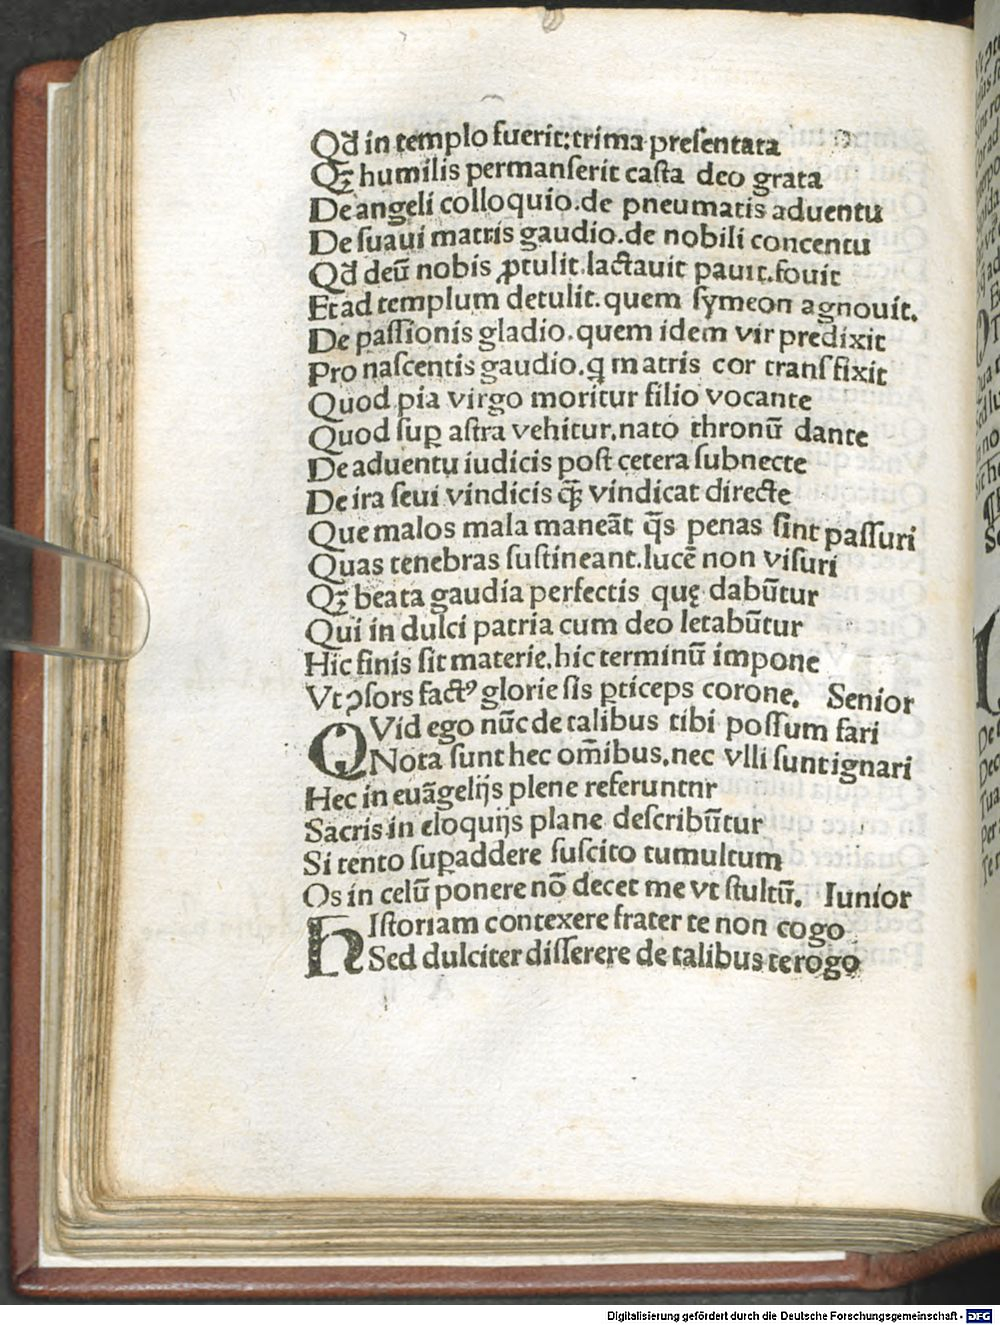 Qđ in templo fuerit:trima presentata
Qꝫ humilis permanserit casta deo grata
De angeli colloquio.de pneumatis aduentu
De suaui matris gaudio.de nobili concentu
Qđ deū nobis ꝓtulit.lactauit pauit.fouit
Et ad templum detulit.quem symeon agnouit.
De passionis gladio.quem idem vir predixit
Pro nascentis gaudio.q matris cor transfixit
Quod pia virgo moritur filio vocante
Quod suꝑ astra vehitur.nato thronū dante
De aduentu iudicis post cetera subnecte
De ira seui vindicis qꝫ vindicat directe
Que malos mala maneāt q̄s penas sint passuri
Quas tenebras sustineant.lucē non visuri
Qꝫ beata gaudia perfectis quę dabūtur
Qui in dulci patria cum deo letabūtur
Hic finis sit materie.hic terminū impone
Vt ꝯsors factꝰ glorie sis ꝑticeps corone. Senior
QVid ego nūc de talibus tibi possum fari
Nota sunt hec om̄ibus.nec vlli sunt ignari
Hec in euāgelijs plene referuntnr
Sacris in eloquijs plane describūtur
Si tento suꝑaddere suscito tumultum
Os in celū ponere nō decet me vt stultū. Iunior
HIstoriam contexere frater te non cogo
Sed dulciter disserere de talibus te rogo
Digitalisierung gefördert durch die Deutsche Forschungsgemeinschaft - DFG